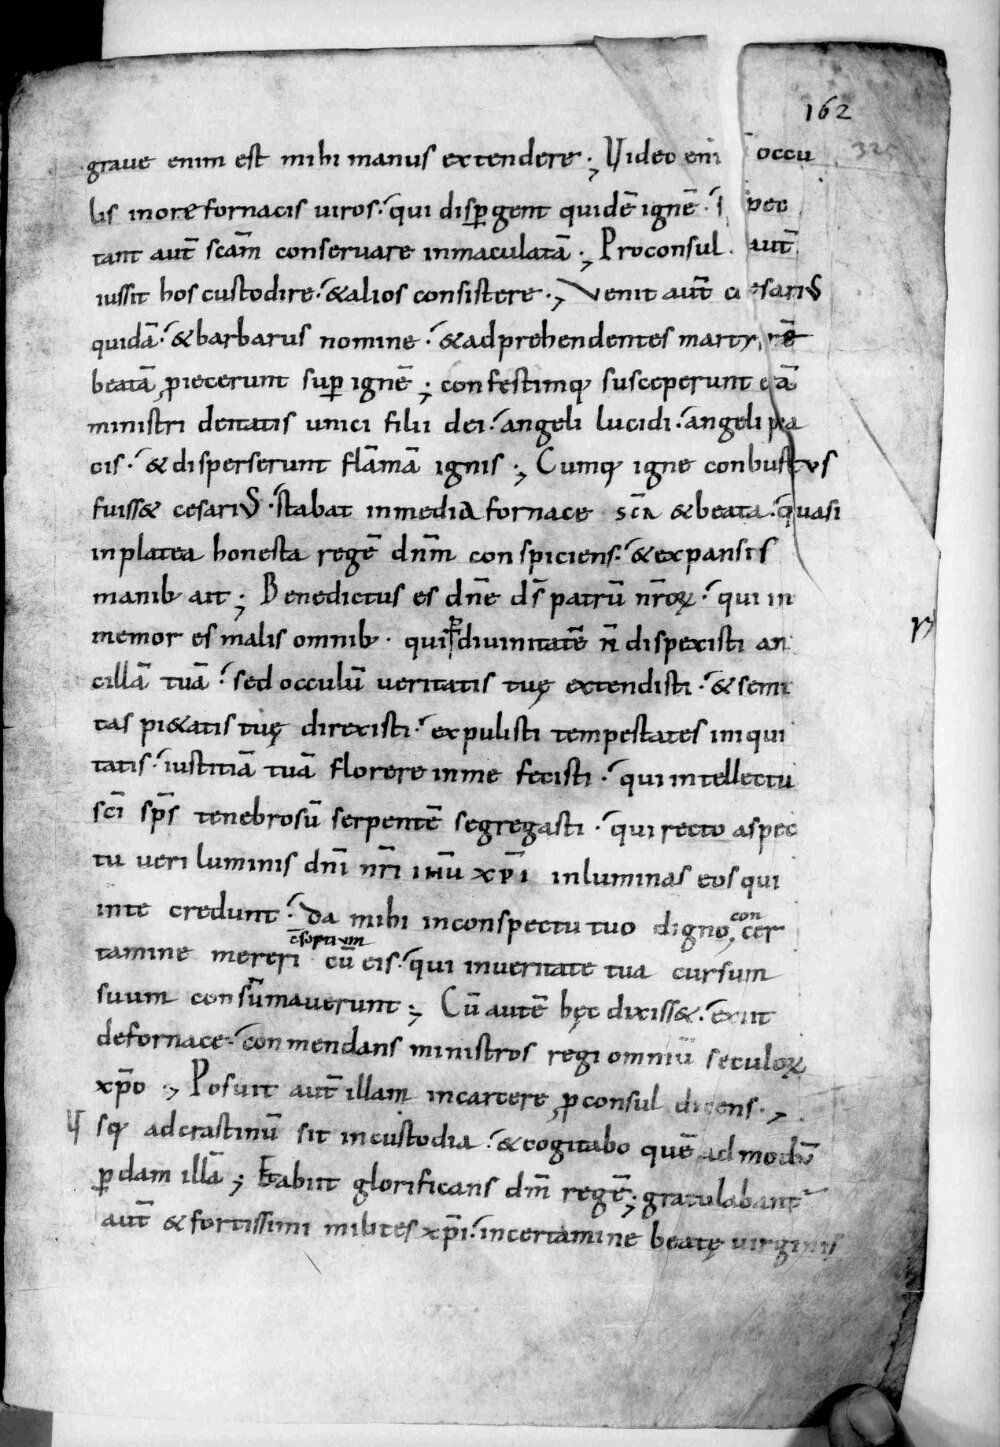 162
325
graue enim est mihi manus extendere ; Video eni occu
lis in ore fornacis uiros . qui disp̱gent quidē ignē . s pec
tant aut̄ scām conseruare inmaculatā ; Proconsul . aut̄
iussit hos custodire . & alios consistere ., Venit aut̄ cesariuS
quidā . & barbarus nomine . & adprehendentes martyrē
beatā ꝓiecerunt suꝑ ignē ; confestimq; susceperunt eā
ministri deitatis unici filii dei . angeli lucidi . angeli pa
cis . & disperserunt flāmā ignis ; Cumq; igne conbustus
fuiss& cesariuS . stabat in media fornace scā & beata . quasi
in platea honesta regē dnm̄ conspiciens . & expansis
manib; ait ; Benedictus es dn̄e ds̄ patrū nr̄oꝝ . qui in
memor es malis omnib; . qui ꝑ diuinitatē n̄ dispexisti an
cillā tuā . sed occulū ueritatis tuę extendisti . & semi
tas pi&atis tuę direxisti . expulisti tempestates iniqui
tatis . iustitiā tuā florere in me fecisti . qui intellectu
scī sp̄s tenebrosū serpentē segregasti . qui recto aspec
tu ueri luminis dnī nrī ihū xp̄i inluminas eos qui
in te credunt . da mihi in conspectu tuo digno con cer
tamine mereri c̄sortium cū eis . qui in ueritate tua cursum
suum consūmauerunt ; Cū autē hęc dixiss& . exiit
de fornace . conmendans ministros regi omniū seculoꝝ
xp̄o ., Posuit aut̄ illam in carcere ꝓconsul dicens .,
Vsq; ad crastinū sit in custodia . & cogitabo quē ad modū
ꝑdam illā ; Et abiit glorificans dm̄ regē ; gratulabant᷑
aut̄ & fortissimi milites xp̄i . in certamine beatę uirginis